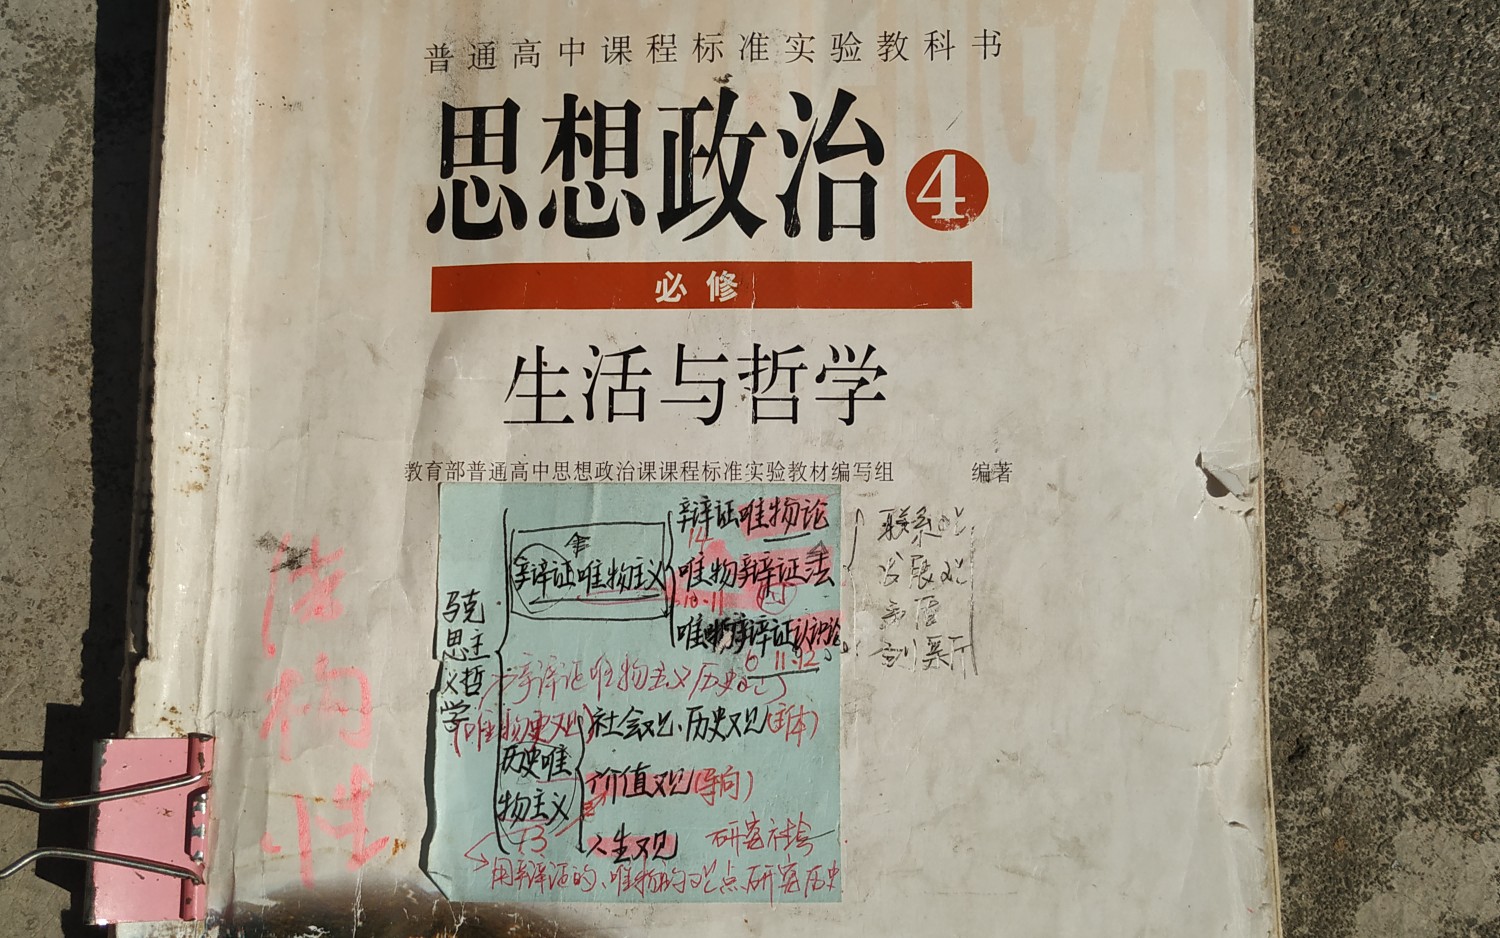 普通高中课程标准实验教科书
思想政治 4
必修
生活与哲学
教育部普通高中思想政治课课程标准实验教材编写组 编著
马克思主义哲学
辩证唯物主义
辩证唯物论
14
唯物辩证法
10·11
唯物辩证认识论
6 11.12
联系观
发展观
矛盾
创新
辩证唯物主义历史观
(唯物史观)
历史唯物主义
13
社会观、历史观(主体)
价值观(导向)
人生观
研究社会
用辩证的、唯物的观点研究历史
结构性